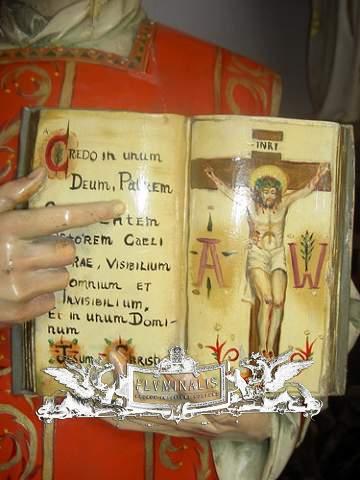 CREDO in unum
Deum, Patrem
entem
torem Caeli
RAE, Visibilium
omnium et
Invisibilium,
Et in unum Domi-
num
Jesum Christ
INRI
A W
FLVMINALIS